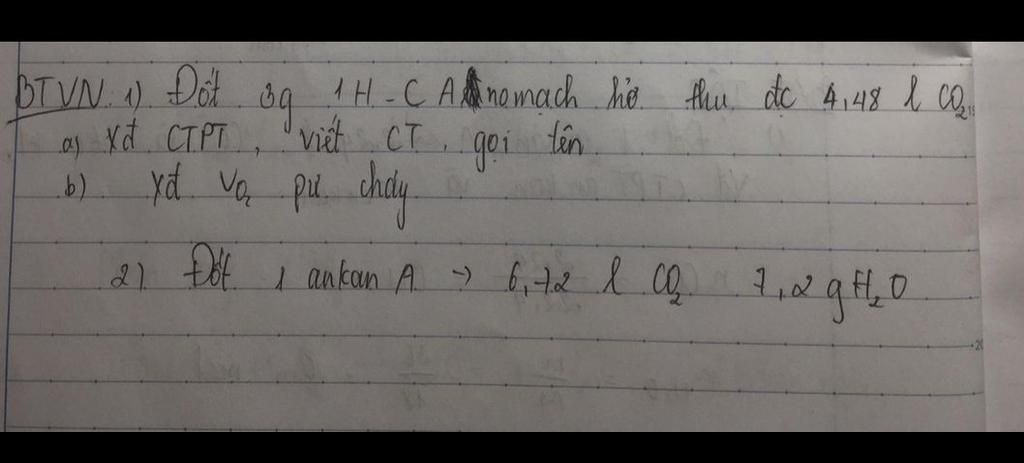 BTVN: 1) Đốt 3g 1 H-C A no mạch hở thu đc 4,48 l CO₂.
a) Xđ CTPT, viết CT, gọi tên
b) Xđ VO₂ pư cháy
2) Đốt 1 ankan A → 6,72 l CO₂ 7,2 g H₂O